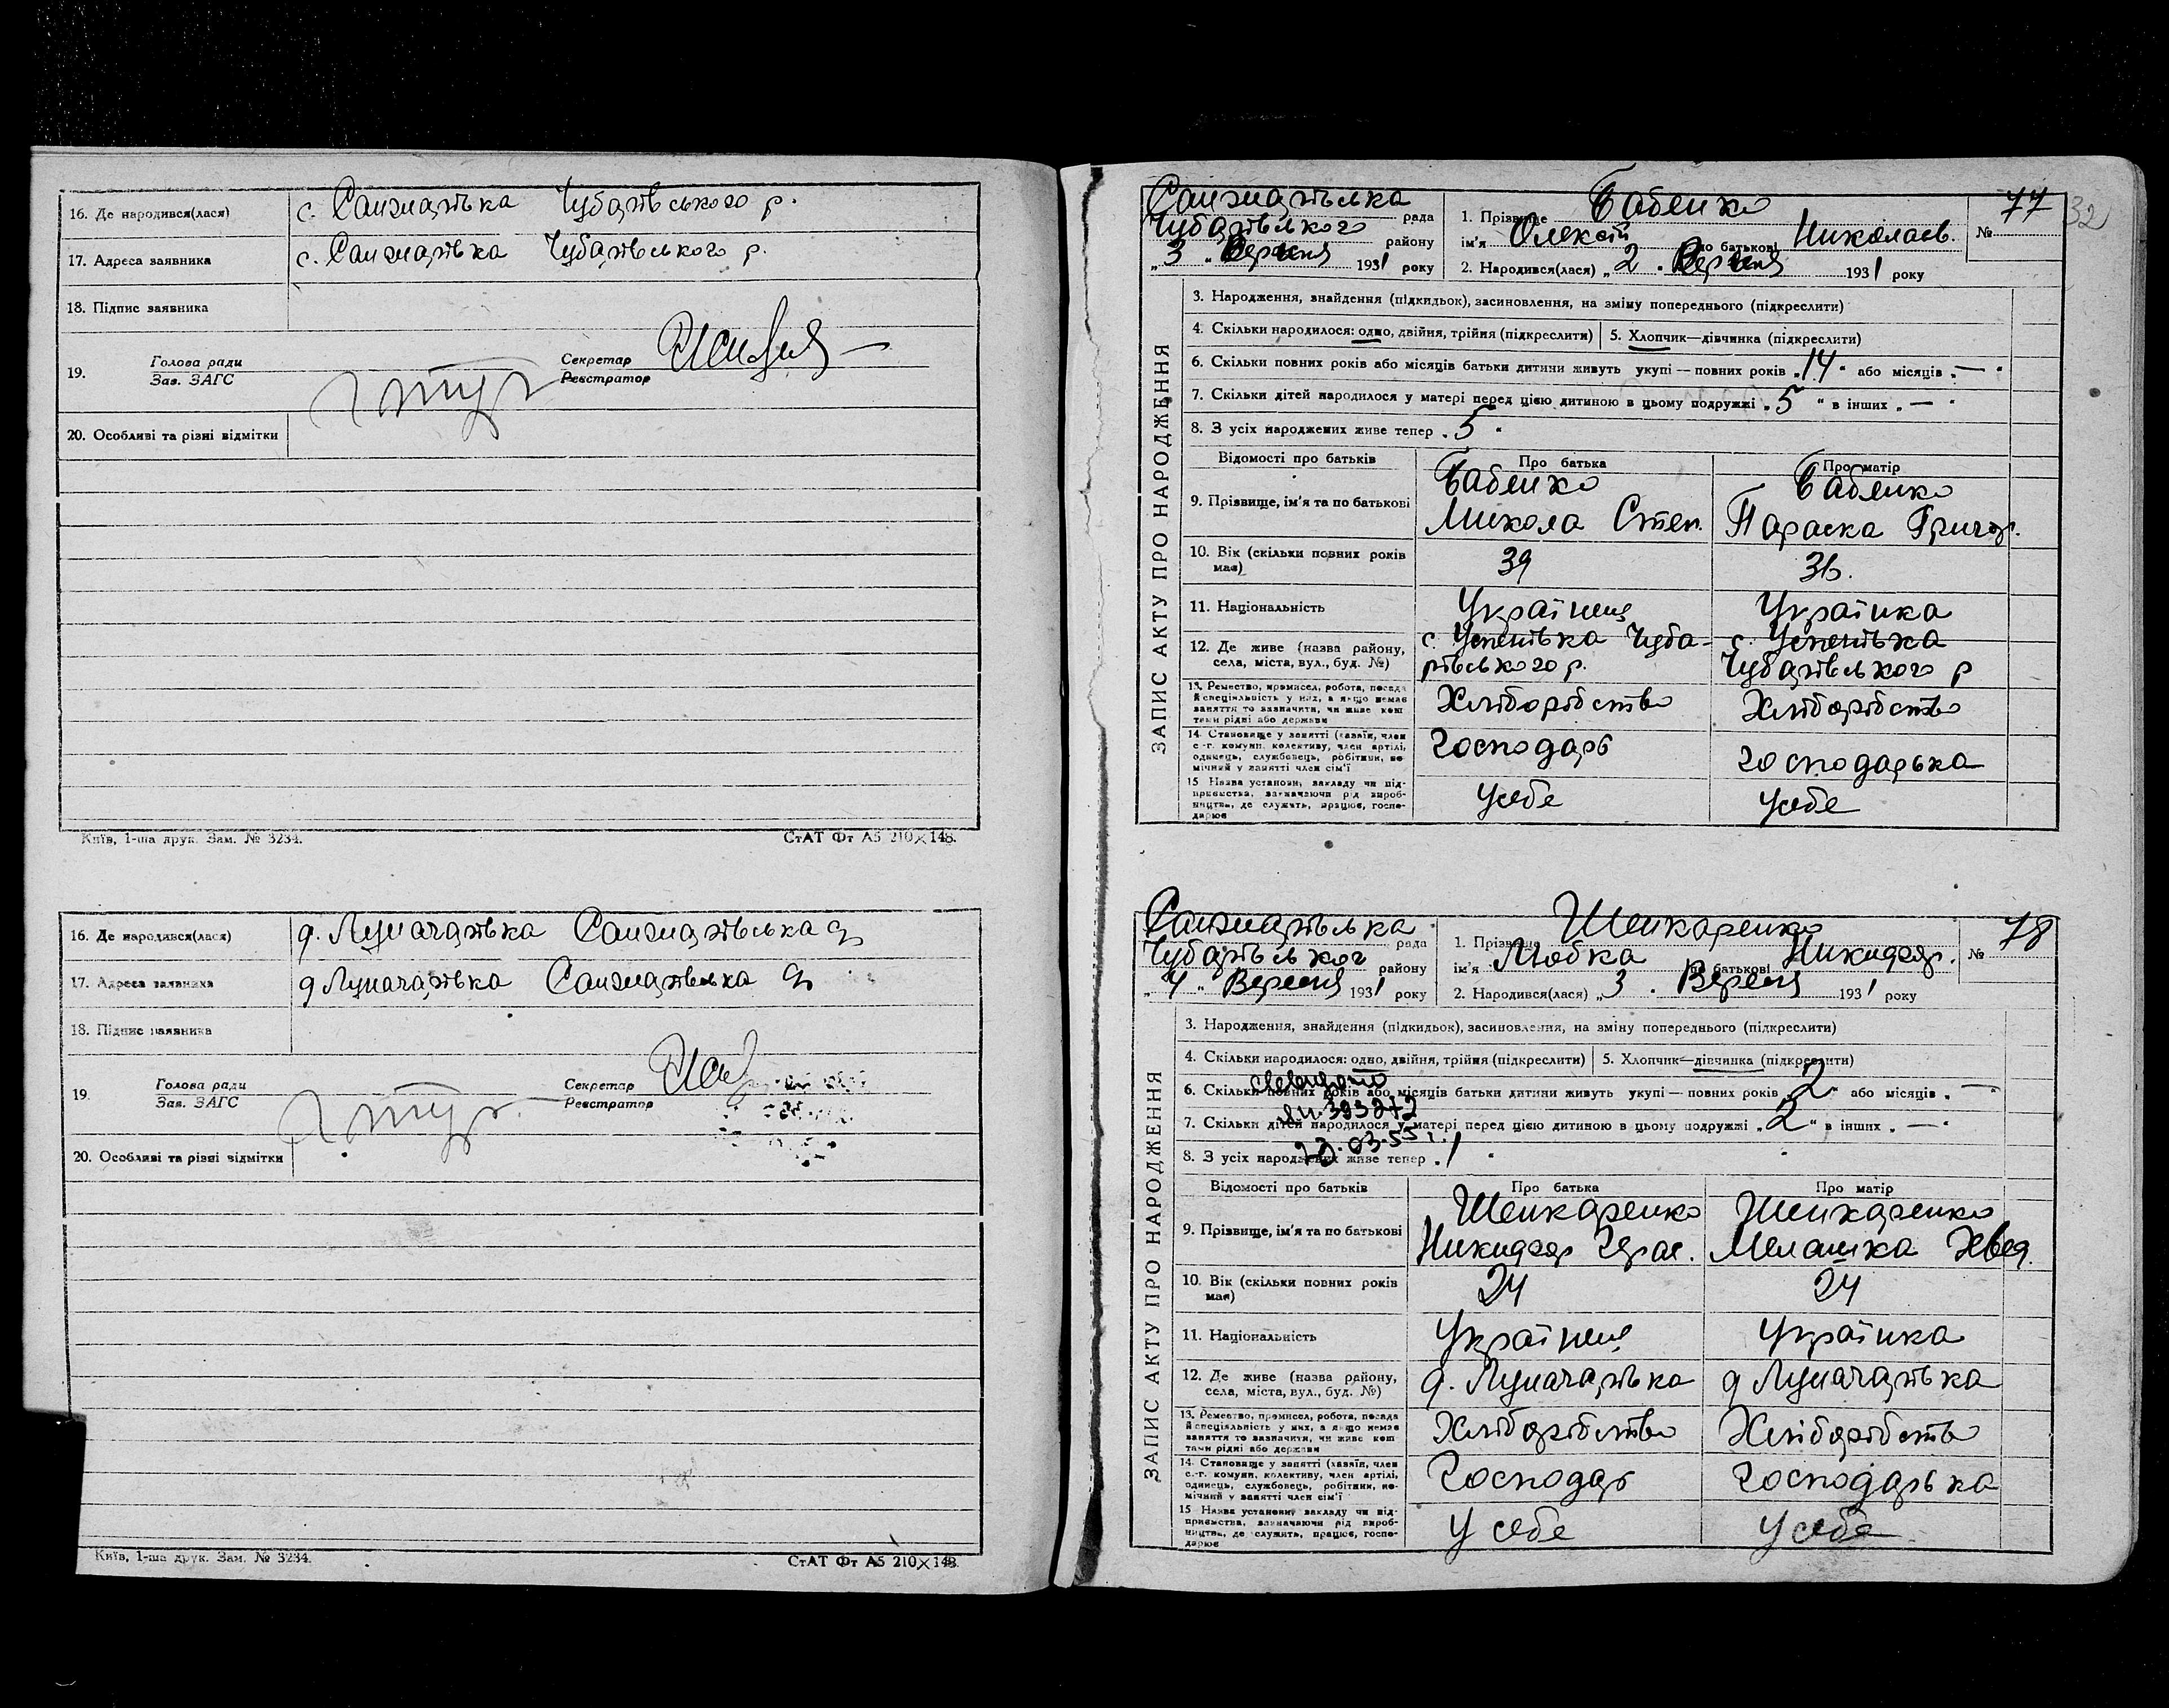 16. Де народився(лася) с. Санжарівка Чубарівського р.
17. Адреса заявника с. Санжарівка Чубарівського р.
18. Підпис заявника
19. Голова ради
Зав. ЗАГС
Секретар
Реєстратор
20. Особливі та різні відмітки
Київ, 1-ша друк. Зам. № 3234.
СтАТ Фт А5 210×148.
16. Де народився(лася) д. Луначарівка Санжарівська
17. Адреса заявника д Луначарівка Санжарівська
18. Підпис заявника
19. Голова ради
Зав. ЗАГС
Секретар
Реєстратор
20. Особливі та різні відмітки
Київ, 1-ша друк. Зам. № 3234.
СтАТ Фт А5 210×148.
32
ЗАПИС АКТУ ПРО НАРОДЖЕННЯ
Санжарівська рада
Чубарівського району
„3" Вересня 1931 року
1. Прізвище Бабенко
ім'я Олексій по батькові Николаєв.
№ 77
2. Народився(лася) „2" Вересня 1931 року
3. Народження, знайдення (підкидьок), засиновлення, на зміну попереднього (підкреслити)
4. Скільки народилося: одно, двійня, трійня (підкреслити) 5. Хлопчик—дівчинка (підкреслити)
6. Скільки повних років або місяців батьки дитини живуть укупі — повних років „14" або місяців „—"
7. Скільки дітей народилося у матері перед цією дитиною в цьому подружжі „5" в інших „—"
8. З усіх народжених живе тепер „5"
Відомості про батьків Про батька Про матір
9. Прізвище, ім'я та по батькові Бабенко Бабенко
Микола Степ. Параска Григор.
10. Вік (скільки повних років має) 39 36.
11. Національність Українець Українка
12. Де живе (назва району, с. Успенівка Чуба- с. Успенівка
села, міста, вул., буд. №) рівського р. Чубарівського р
13. Ремество, промисел, робота, посада й спеціяльність у них, а якщо немає заняття то зазначити, чи живе коштами рідні або держави Хліборобство Хліборобство
14. Становище у занятті (хазяїн, член с.-г. комуни, колективу, член артілі, одинець, службовець, робітник, помічний у занятті член сім'ї Господарь господарька
15 Назва установи, закладу чи підприємства, зазначаючи рід виробництва, де служить, працює, господарює У себе У себе
ЗАПИС АКТУ ПРО НАРОДЖЕННЯ
Санжарівська рада
Чубарівськог району
„4" Вересня 1931 року
1. Прізвище Шенкаренко
ім'я Любка по батькові Никифор.
№ 78
2. Народився(лася) „3" Вересня 1931 року
3. Народження, знайдення (підкидьок), засиновлення, на зміну попереднього (підкреслити)
4. Скільки народилося: одно, двійня, трійня (підкреслити) 5. Хлопчик—дівчинка (підкреслити)
6. Скільки повних років або місяців батьки дитини живуть укупі — повних років „2" або місяців „—"
7. Скільки дітей народилося у матері перед цією дитиною в цьому подружжі „2" в інших „—"
8. З усіх народжених живе тепер „1"
Відомості про батьків Про батька Про матір
9. Прізвище, ім'я та по батькові Шенкаренко Шенкаренко
Никифор Герас. Мелашка Хвед.
10. Вік (скільки повних років має) 24 24
11. Національність Українець Українка
12. Де живе (назва району, села, міста, вул., буд. №) д. Луначарівка д Луначарівка
13. Ремество, промисел, робота, посада й спеціяльність у них, а якщо немає заняття то зазначити, чи живе коштами рідні або держави Хліборобство Хліборобств
14. Становище у занятті (хазяїн, член с.-г. комуни, колективу, член артілі, одинець, службовець, робітник, помічний у занятті член сім'ї Господарь Господарька
15 Назва установи, закладу чи підприємства, зазначаючи рід виробництва, де служить, працює, господарює У себе У себе